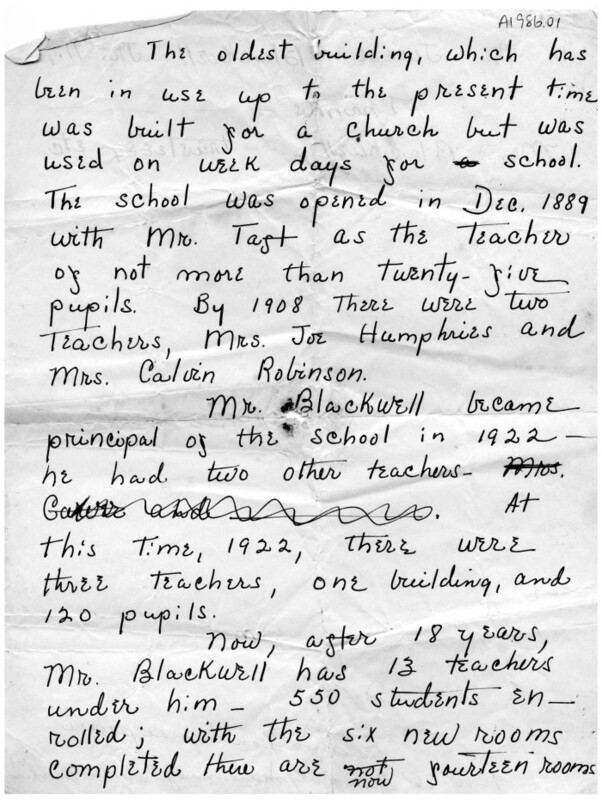 A1986.01
The oldest building, which has
been in use up to the present time
was built for a church but was
used on week days for a school.
The school was opened in Dec. 1889
with Mr. Taft as the teacher
of not more than twenty-five
pupils. By 1908 there were two
teachers, Mrs. Joe Humphries and
Mrs. Calvin Robinson.
Mr. Blackwell became
principal of the school in 1922 —
he had two other teachers - Mrs.
and . At
this time, 1922, there were
three teachers, one building, and
120 pupils.
Now, after 18 years,
Mr. Blackwell has 13 teachers
under him - 550 students en-
rolled; with the six new rooms
completed there are not
now fourteen rooms